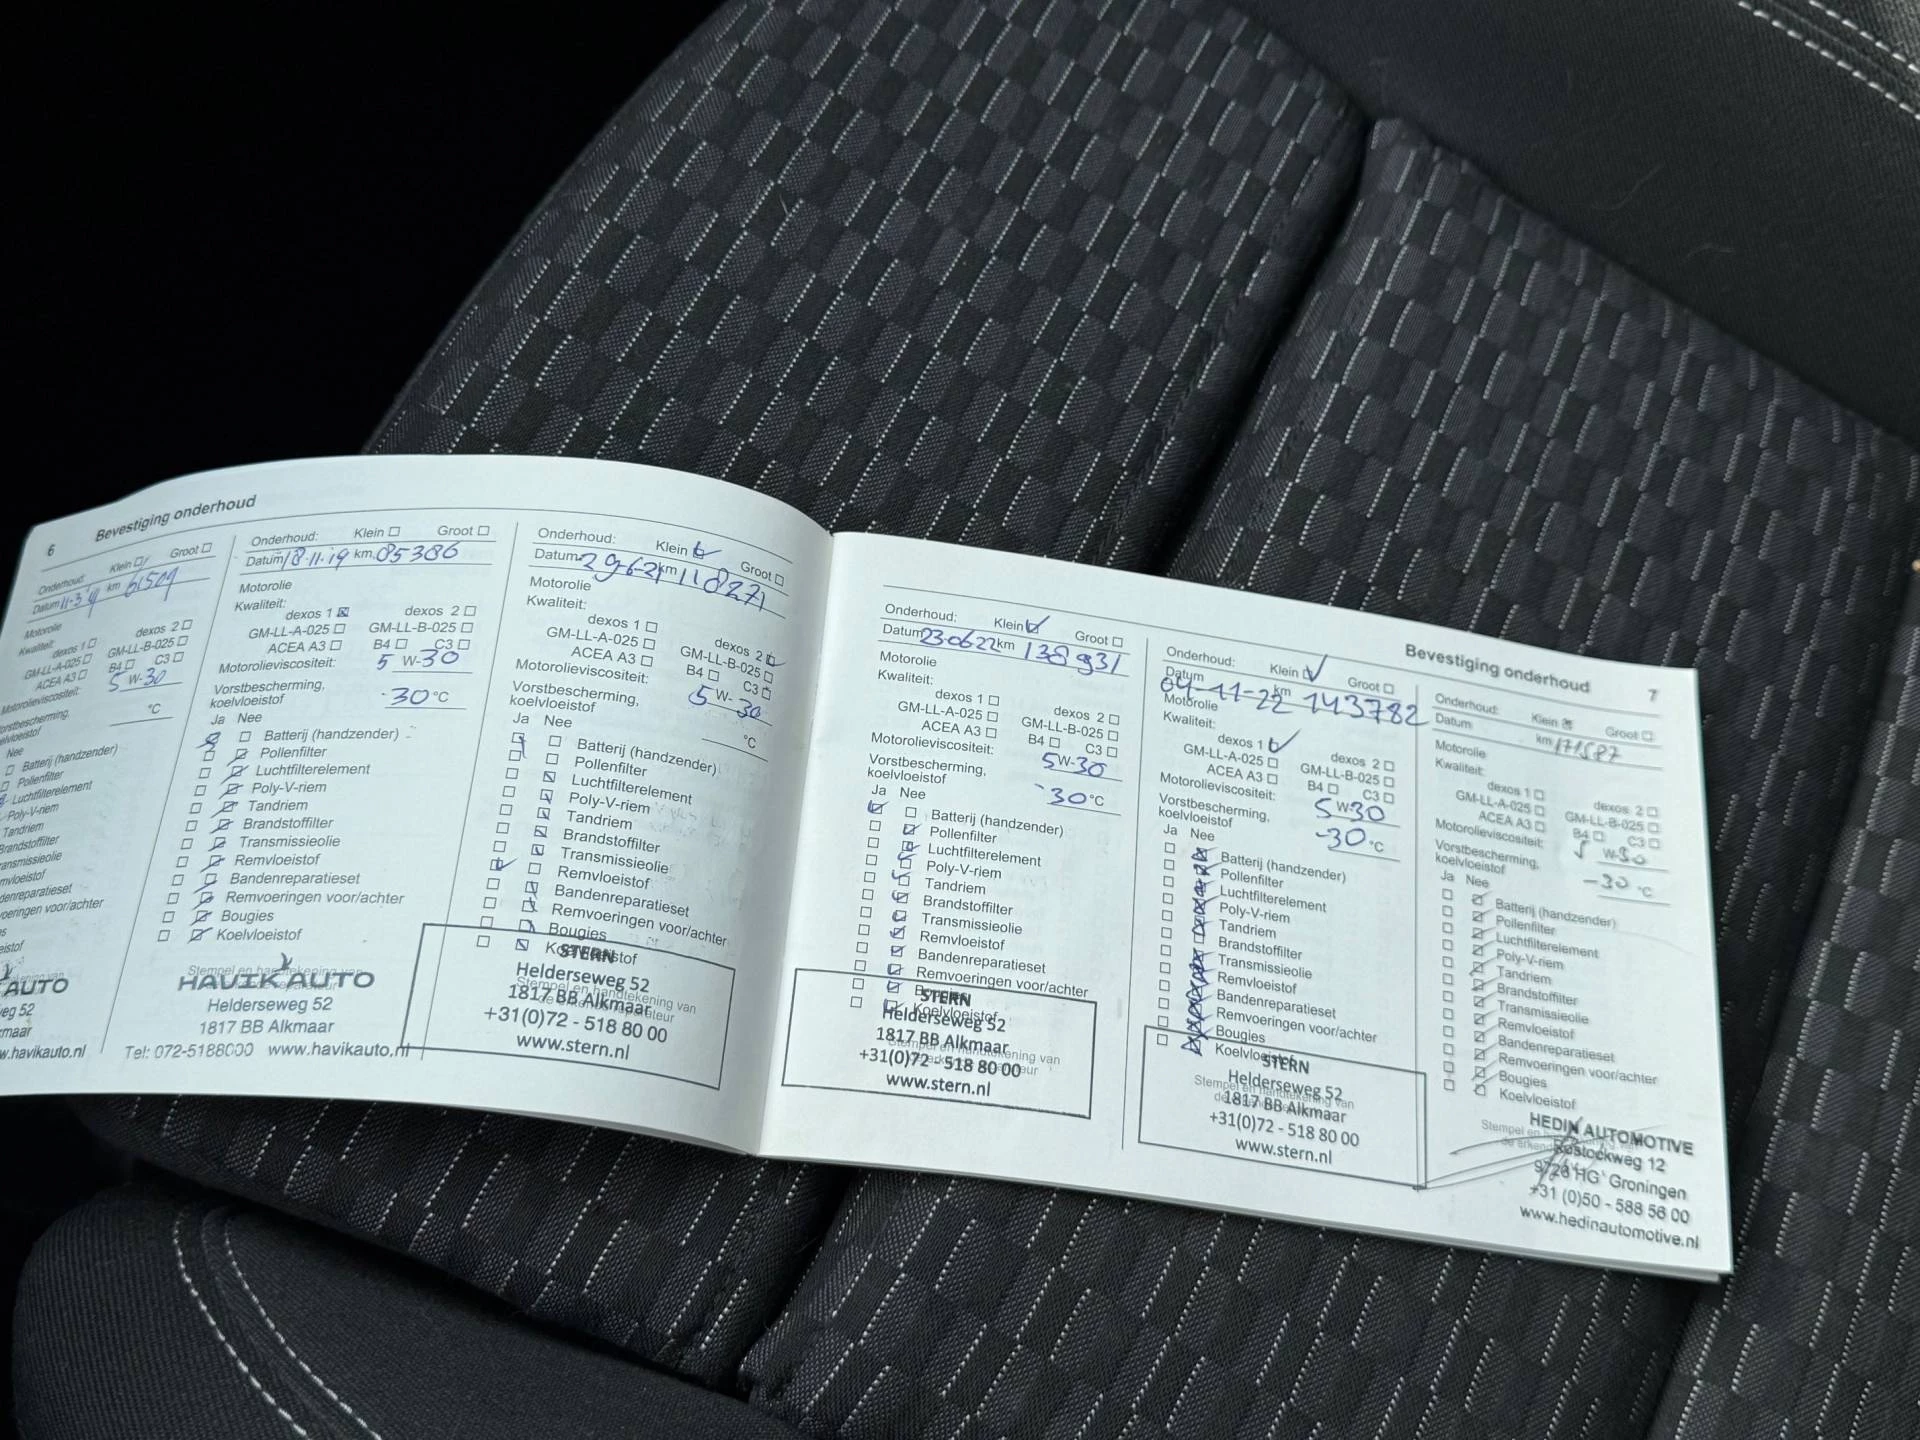 6
Bevestiging onderhoud
Onderhoud: Klein Groot
Datum 11-3-19 km 61509
Motorolie
Kwaliteit:
dexos 1 dexos 2
GM-LL-A-025 GM-LL-B-025
ACEA A3 B4 C3
Motorolieviscositeit: 5 W-30
Vorstbescherming,
koelvloeistof °C
Nee
Batterij (handzender)
Pollenfilter
Luchtfilterelement
Poly-V-riem
Tandriem
Brandstoffilter
Transmissieolie
Remvloeistof
Bandenreparatieset
Remvoeringen voor/achter
AUTO
www.havikauto.nl
Onderhoud: Klein Groot
Datum 18-11-19 km 85386
Motorolie
Kwaliteit:
dexos 1 dexos 2
GM-LL-A-025 GM-LL-B-025
ACEA A3 B4 C3
Motorolieviscositeit: 5 W-30
Vorstbescherming,
koelvloeistof -30 °C
Ja Nee
Batterij (handzender)
Pollenfilter
Luchtfilterelement
Poly-V-riem
Tandriem
Brandstoffilter
Transmissieolie
Remvloeistof
Bandenreparatieset
Remvoeringen voor/achter
Bougies
Koelvloeistof
HAVIK AUTO
Helderseweg 52
1817 BB Alkmaar
Tel: 072-5188000 www.havikauto.nl
Onderhoud: Klein Groot
Datum 29-6-21 km 118271
Motorolie
Kwaliteit:
dexos 1 dexos 2
GM-LL-A-025 GM-LL-B-025
ACEA A3 B4 C3
Motorolieviscositeit: 5 W-30
Vorstbescherming,
koelvloeistof °C
Ja Nee
Batterij (handzender)
Pollenfilter
Luchtfilterelement
Poly-V-riem
Tandriem
Brandstoffilter
Transmissieolie
Remvloeistof
Bandenreparatieset
Remvoeringen voor/achter
Bougies
Koelvloeistof
Stempel en handtekening van
STERN
Helderseweg 52
1817 BB Alkmaar
+31(0)72 - 518 80 00
www.stern.nl
Bevestiging onderhoud
7
Onderhoud: Klein Groot
Datum 23-06-22 km 138931
Motorolie
Kwaliteit:
dexos 1 dexos 2
GM-LL-A-025 GM-LL-B-025
ACEA A3 B4 C3
Motorolieviscositeit: 5W-30
Vorstbescherming,
koelvloeistof -30 °C
Ja Nee
Batterij (handzender)
Pollenfilter
Luchtfilterelement
Poly-V-riem
Tandriem
Brandstoffilter
Transmissieolie
Remvloeistof
Bandenreparatieset
Remvoeringen voor/achter
Bougies
Koelvloeistof
STERN
Helderseweg 52
1817 BB Alkmaar
+31(0)72 - 518 80 00
www.stern.nl
Onderhoud: Klein Groot
Datum 04-11-22 km 143782
Motorolie
Kwaliteit:
dexos 1 dexos 2
GM-LL-A-025 GM-LL-B-025
ACEA A3 B4 C3
Motorolieviscositeit: 5 W-30
Vorstbescherming,
koelvloeistof -30 °C
Ja Nee
Batterij (handzender)
Pollenfilter
Luchtfilterelement
Poly-V-riem
Tandriem
Brandstoffilter
Transmissieolie
Remvloeistof
Bandenreparatieset
Remvoeringen voor/achter
Bougies
Koelvloeistof
Stempel en handtekening van
STERN
Helderseweg 52
1817 BB Alkmaar
+31(0)72 - 518 80 00
www.stern.nl
Onderhoud: Klein Groot
Datum km 171587
Motorolie
Kwaliteit:
dexos 1 dexos 2
GM-LL-A-025 GM-LL-B-025
ACEA A3 B4 C3
Motorolieviscositeit: 5 W-30
Vorstbescherming,
koelvloeistof -30 °C
Ja Nee
Batterij (handzender)
Pollenfilter
Luchtfilterelement
Poly-V-riem
Tandriem
Brandstoffilter
Transmissieolie
Remvloeistof
Bandenreparatieset
Remvoeringen voor/achter
Bougies
Koelvloeistof
HEDIN AUTOMOTIVE
Rostockweg 12
HG Groningen
+31 (0)50 - 588 56 00
www.hedinautomotive.nl